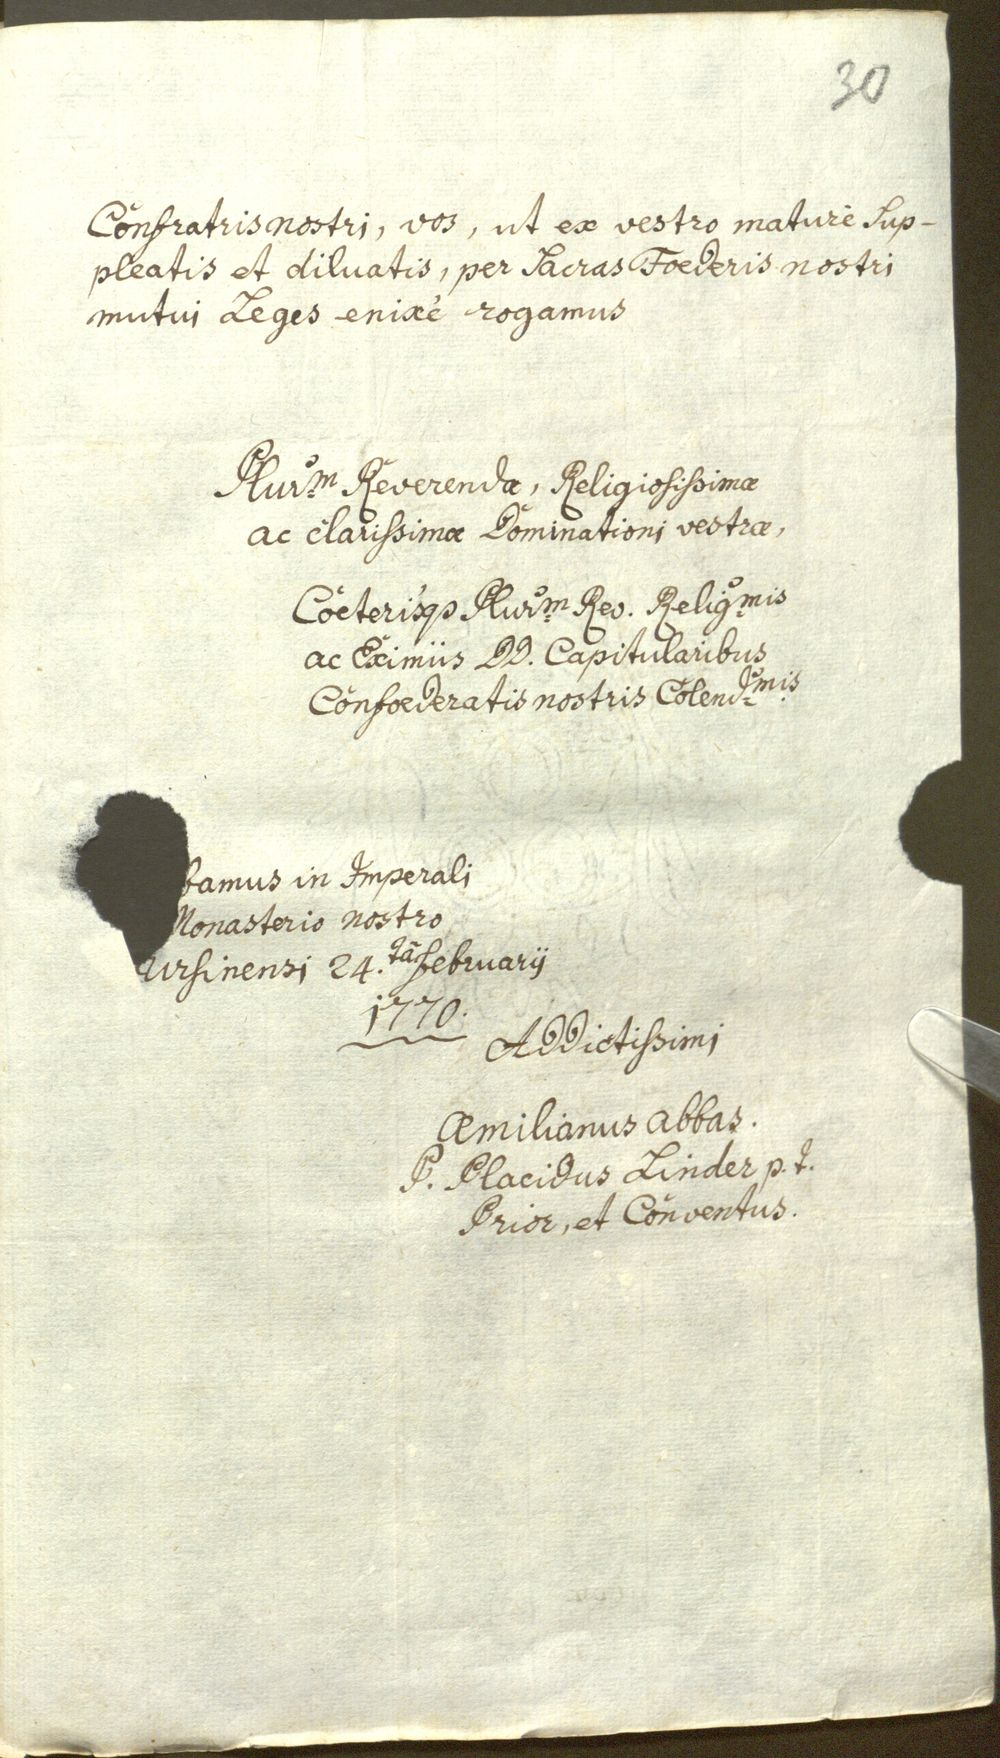 30
Confratris nostri, vos, ut ex vestro maturè Sup-
pleatis et diluatis, per Sacras Foederis nostri
mutui Leges enixè rogamus
Plur̃m Reverendæ, Religiosissimæ
ac clarissimæ Dominationi vestræ,
Coeterisqȝ Plur̃m Rev. Relig̃mis
ac Eximiis DD. Capitularibus
Confoederatis nostris Colend̃mis
bamus in Imperali
Monasterio nostro
Ursinensi 24.ta februarij
1770.
Addictissimi
Æmilianus abbas.
P. Placidus Linder p. t.
Prior, et Conventus.